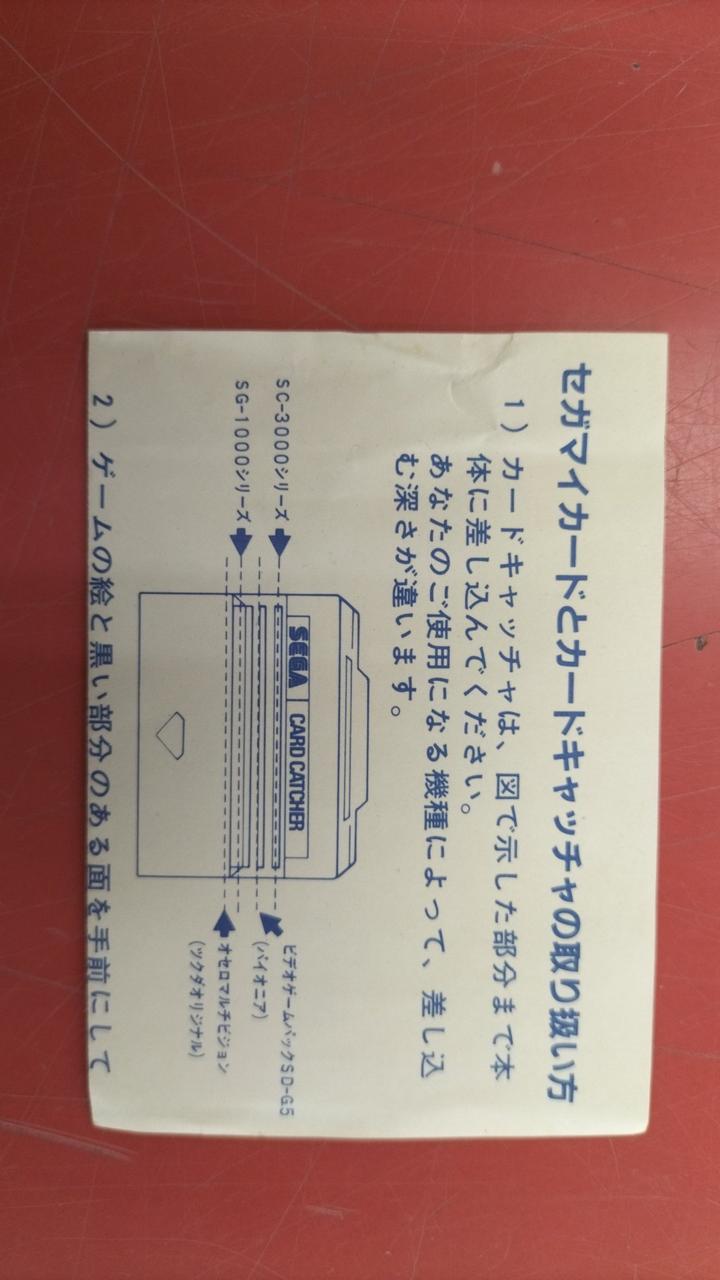 セガマイカードとカードキャッチャの取り扱い方
1）カードキャッチャは、図で示した部分まで本
体に差し込んでください。
あなたのご使用になる機種によって、差し込
む深さが違います。
SC-3000シリーズ
SG-1000シリーズ
SEGA CARD CATCHER
ビデオゲームパックSD-G5
(パイオニア)
オセロマルチビジョン
(ツクダオリジナル)
2）ゲームの絵と黒い部分のある面を手前にして